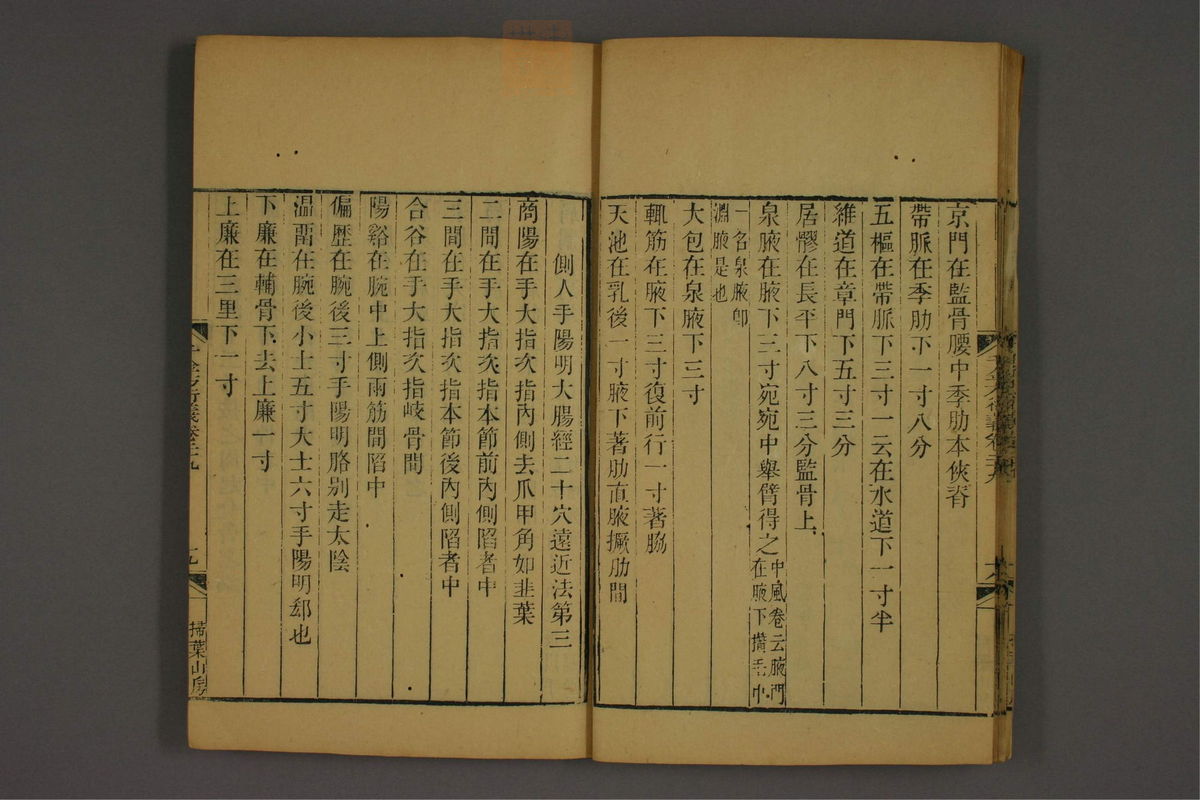 京門在監骨腰中季肋本俠脊
帶脈在季肋下一寸八分
五樞在帶脈下三寸一云在水道下一寸半
維道在章門下五寸三分
居髎在長平下八寸三分監骨上
泉腋在腋下三寸宛宛中舉臂得之中風卷云腋門在腋下攢毛中
一名泉腋卽淵腋是也
大包在泉腋下三寸
輒筋在腋下三寸復前行一寸著脇
天池在乳後一寸腋下著肋直腋撅肋間
側人手陽明大腸經二十穴遠近法第三
商陽在手大指次指內側去爪甲角如韭葉
二間在手大指次指本節前內側陷者中
三間在手大指次指本節後內側陷者中
合谷在手大指次指岐骨間
陽谿在腕中上側兩筋間陷中
偏歷在腕後三寸手陽明胳別走太陰
温畱在腕後小士五寸大士六寸手陽明郄也
下廉在輔骨下去上廉一寸
上廉在三里下一寸
千金方衍義卷二十九
九
掃葉山房